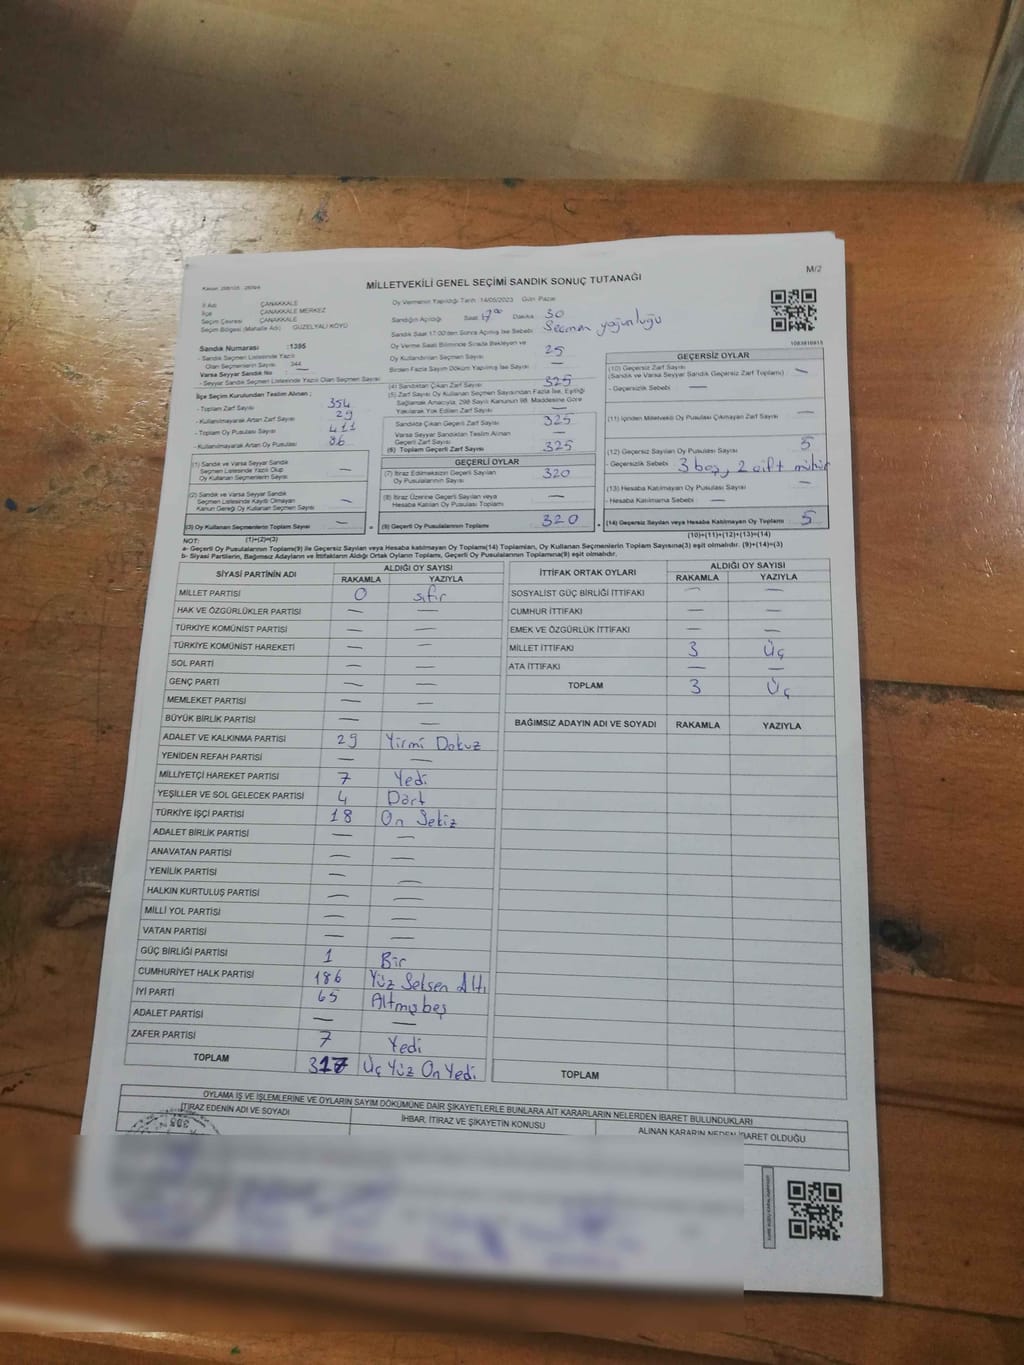 M/2
MİLLETVEKİLİ GENEL SEÇİMİ SANDIK SONUÇ TUTANAĞI
İl Adı : ÇANAKKALE
İlçe : ÇANAKKALE MERKEZ
Seçim Çevresi : ÇANAKKALE
Seçim Bölgesi (Mahalle Adı) : GÜZELYALI KÖYÜ
Oy Vermenin Yapıldığı Tarih :14/05/2023 Gün :Pazar
Sandığın Açıldığı Saat 17⁰⁰ Dakika 50
Sandık Saat 17.00'den Sonra Açılmış İse Sebebi Seçmen yoğunluğu
1083816915
Sandık Numarası :1395
- Sandık Seçmen Listesinde Yazılı
Olan Seçmenlerin Sayısı 344
Varsa Seyyar Sandık No —
- Seyyar Sandık Seçmen Listesinde Yazılı Olan Seçmen Sayısı
İlçe Seçim Kurulundan Teslim Alınan ;
- Toplam Zarf Sayısı 354
- Kullanılmayarak Artan Zarf Sayısı 29
- Toplam Oy Pusulası Sayısı 411
- Kullanılmayarak Artan Oy Pusulası 86
(1) Sandık ve Varsa Seyyar Sandık
Seçmen Listesinde Yazılı Olup
Oy Kullanan Seçmenlerin Sayısı —
(2) Sandık ve Varsa Seyyar Sandık
Seçmen Listesinde Kayıtlı Olmayan
Kanun Gereği Oy Kullanan Seçmen Sayısı —
(3) Oy Kullanan Seçmenlerin Toplam Sayısı —
(1)+(2)=(3)
Oy Verme Saati Bitiminde Sırada Bekleyen ve
Oy Kullandırılan Seçmen Sayısı 25
Birden Fazla Sayım Döküm Yapılmış İse Sayısı —
(4) Sandıktan Çıkan Zarf Sayısı 325
(5) Zarf Sayısı Oy Kullanan Seçmen Sayısından Fazla İse, Eşitliği
Sağlamak Amacıyla, 298 Sayılı Kanunun 98. Maddesine Göre
Yakılarak Yok Edilen Zarf Sayısı —
Sandıkta Çıkan Geçerli Zarf Sayısı 325
Varsa Seyyar Sandıktan Teslim Alınan
Geçerli Zarf Sayısı —
(6) Toplam Geçerli Zarf Sayısı 325
GEÇERLİ OYLAR
(7) İtiraz Edilmeksizin Geçerli Sayılan
Oy Pusulalarının Sayısı 320
(8) İtiraz Üzerine Geçerli Sayılan veya
Hesaba Katılan Oy Pusulası Toplamı —
(9) Geçerli Oy Pusulalarının Toplamı 320
GEÇERSİZ OYLAR
(10) Geçersiz Zarf Sayısı
(Sandık ve Varsa Seyyar Sandık Geçersiz Zarf Toplamı) —
- Geçersizlik Sebebi —
(11) İçinden Milletvekili Oy Pusulası Çıkmayan Zarf Sayısı —
(12) Geçersiz Sayılan Oy Pusulası Sayısı 5
- Geçersizlik Sebebi 3 boş, 2 çift mühür
(13) Hesaba Katılmayan Oy Pusulası Sayısı —
- Hesaba Katılmama Sebebi —
(14) Geçersiz Sayılan veya Hesaba Katılmayan Oy Toplamı 5
(10)+(11)+(12)+(13)=(14)
NOT:
a- Geçerli Oy Pusulaları Toplamı(9) ile Geçersiz Sayılan veya Hesaba katılmayan Oy Toplamı(14) Toplamları, Oy Kullanan Seçmenlerin Toplam Sayısına(3) eşit olmalıdır. (9)+(14)=(3)
b- Siyasi Partilerin, Bağımsız Adayların ve İttifakların Aldığı Ortak Oyların Toplamı, Geçerli Oy Pusulalarının Toplamına(9) eşit olmalıdır.
SİYASİ PARTİNİN ADI ALDIĞI OY SAYISI
RAKAMLA YAZIYLA
MİLLET PARTİSİ 0 sıfır
HAK VE ÖZGÜRLÜKLER PARTİSİ — —
TÜRKİYE KOMÜNİST PARTİSİ — —
TÜRKİYE KOMÜNİST HAREKETİ — —
SOL PARTİ — —
GENÇ PARTİ — —
MEMLEKET PARTİSİ — —
BÜYÜK BİRLİK PARTİSİ — —
ADALET VE KALKINMA PARTİSİ 29 Yirmi Dokuz
YENİDEN REFAH PARTİSİ — —
MİLLİYETÇİ HAREKET PARTİSİ 7 Yedi
YEŞİLLER VE SOL GELECEK PARTİSİ 4 Dört
TÜRKİYE İŞÇİ PARTİSİ 18 On Sekiz
ADALET BİRLİK PARTİSİ — —
ANAVATAN PARTİSİ — —
YENİLİK PARTİSİ — —
HALKIN KURTULUŞ PARTİSİ — —
MİLLİ YOL PARTİSİ — —
VATAN PARTİSİ — —
GÜÇ BİRLİĞİ PARTİSİ 1 Bir
CUMHURİYET HALK PARTİSİ 186 Yüz Seksen Altı
İYİ PARTİ 65 Altmış beş
ADALET PARTİSİ — —
ZAFER PARTİSİ 7 Yedi
TOPLAM 317 Üç Yüz On Yedi
İTTİFAK ORTAK OYLARI ALDIĞI OY SAYISI
RAKAMLA YAZIYLA
SOSYALİST GÜÇ BİRLİĞİ İTTİFAKI — —
CUMHUR İTTİFAKI — —
EMEK VE ÖZGÜRLÜK İTTİFAKI — —
MİLLET İTTİFAKI 3 Üç
ATA İTTİFAKI — —
TOPLAM 3 Üç
BAĞIMSIZ ADAYIN ADI VE SOYADI RAKAMLA YAZIYLA
TOPLAM
OYLAMA İŞ VE İŞLEMLERİNE VE OYLARIN SAYIM DÖKÜMÜNE DAİR ŞİKAYETLERLE BUNLARA AİT KARARLARIN NELERDEN İBARET BULUNDUKLARI
İTİRAZ EDENİN ADI VE SOYADI
İHBAR, İTİRAZ VE ŞİKAYETİN KONUSU
ALINAN KARARIN NEDEN İBARET OLDUĞU